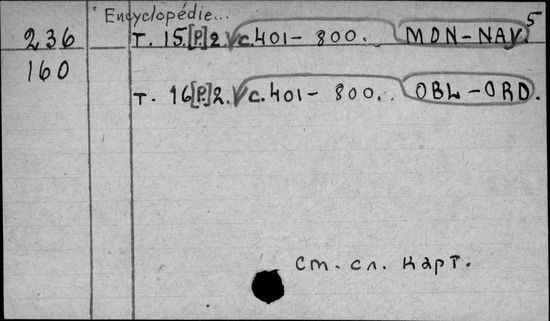 Encyclopédie...
5
236 т. 15.[P.]2. c.401- 800. MON-NAV.
160
т. 16[P.]2. c.401- 800.. OBL-ORD.
Ст. сл. карт.